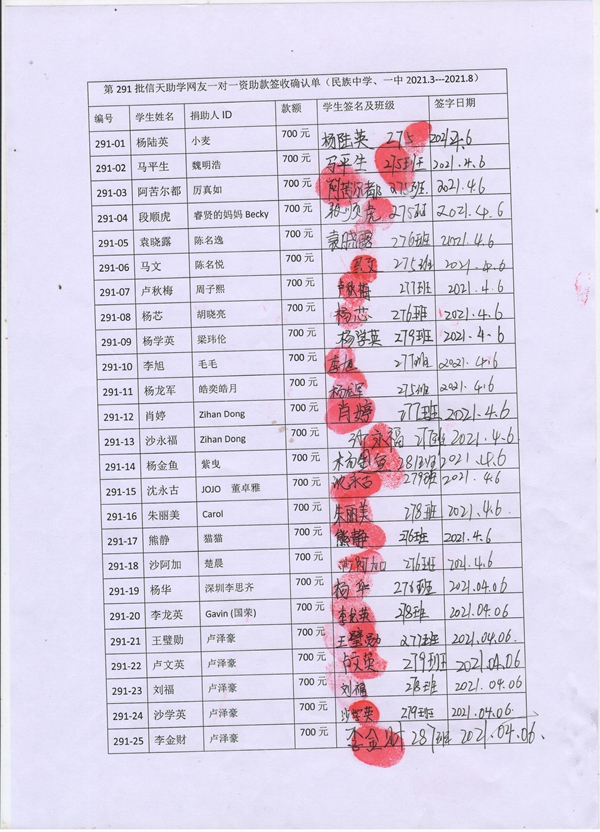 第 291 批信天助学网友一对一资助款签收确认单（民族中学、一中 2021.3---2021.8）
编号 学生姓名 捐助人 ID 款额 学生签名及班级 签字日期
291-01 杨陆英 小麦 700 元 杨陆英 275 2021.4.6
291-02 马平生 魏明浩 700 元 马平生 275班 2021.4.6
291-03 阿苦尔都 厉真如 700 元 阿苦尔都 275班 2021.4.6
291-04 段顺虎 睿贤的妈妈 Becky 700 元 段顺虎 275班 2021.4.6
291-05 袁晓露 陈名逸 700 元 袁晓露 276班 2021.4.6
291-06 马文 陈名悦 700 元 马文 275班 2021.4.6
291-07 卢秋梅 周子熙 700 元 卢秋梅 277班 2021.4.6
291-08 杨芯 胡晓亮 700 元 杨芯 276班 2021.4.6
291-09 杨学英 梁玮伦 700 元 杨学英 279班 2021.4.6
291-10 李旭 毛毛 700 元 李旭 277班 2021.4.6
291-11 杨龙军 皓奕皓月 700 元 杨龙军 275班 2021.4.6
291-12 肖婷 Zihan Dong 700 元 肖婷 277班 2021.4.6
291-13 沙永福 Zihan Dong 700 元 沙永福 277班 2021.4.6
291-14 杨金鱼 紫曳 700 元 杨金鱼 281班 2021.4.6
291-15 沈永古 JOJO 董卓雅 700 元 沈永古 279班 2021.4.6
291-16 朱丽美 Carol 700 元 朱丽美 278班 2021.4.6.
291-17 熊静 猫猫 700 元 熊静 276班 2021.4.6
291-18 沙阿加 楚晨 700 元 沙阿加 276班 2021.4.6
291-19 杨华 深圳李思齐 700 元 杨华 278班 2021.04.06
291-20 李龙英 Gavin (国荣) 700 元 李龙英 278班 2021.04.06
291-21 王璧勋 卢泽豪 700 元 王璧勋 277班 2021.04.06.
291-22 卢文英 卢泽豪 700 元 卢文英 279班 2021.04.06
291-23 刘福 卢泽豪 700 元 刘福 278班 2021.04.06
291-24 沙学英 卢泽豪 700 元 沙学英 279班 2021.04.06.
291-25 李金财 卢泽豪 700 元 李金财 281班 2021.04.06.